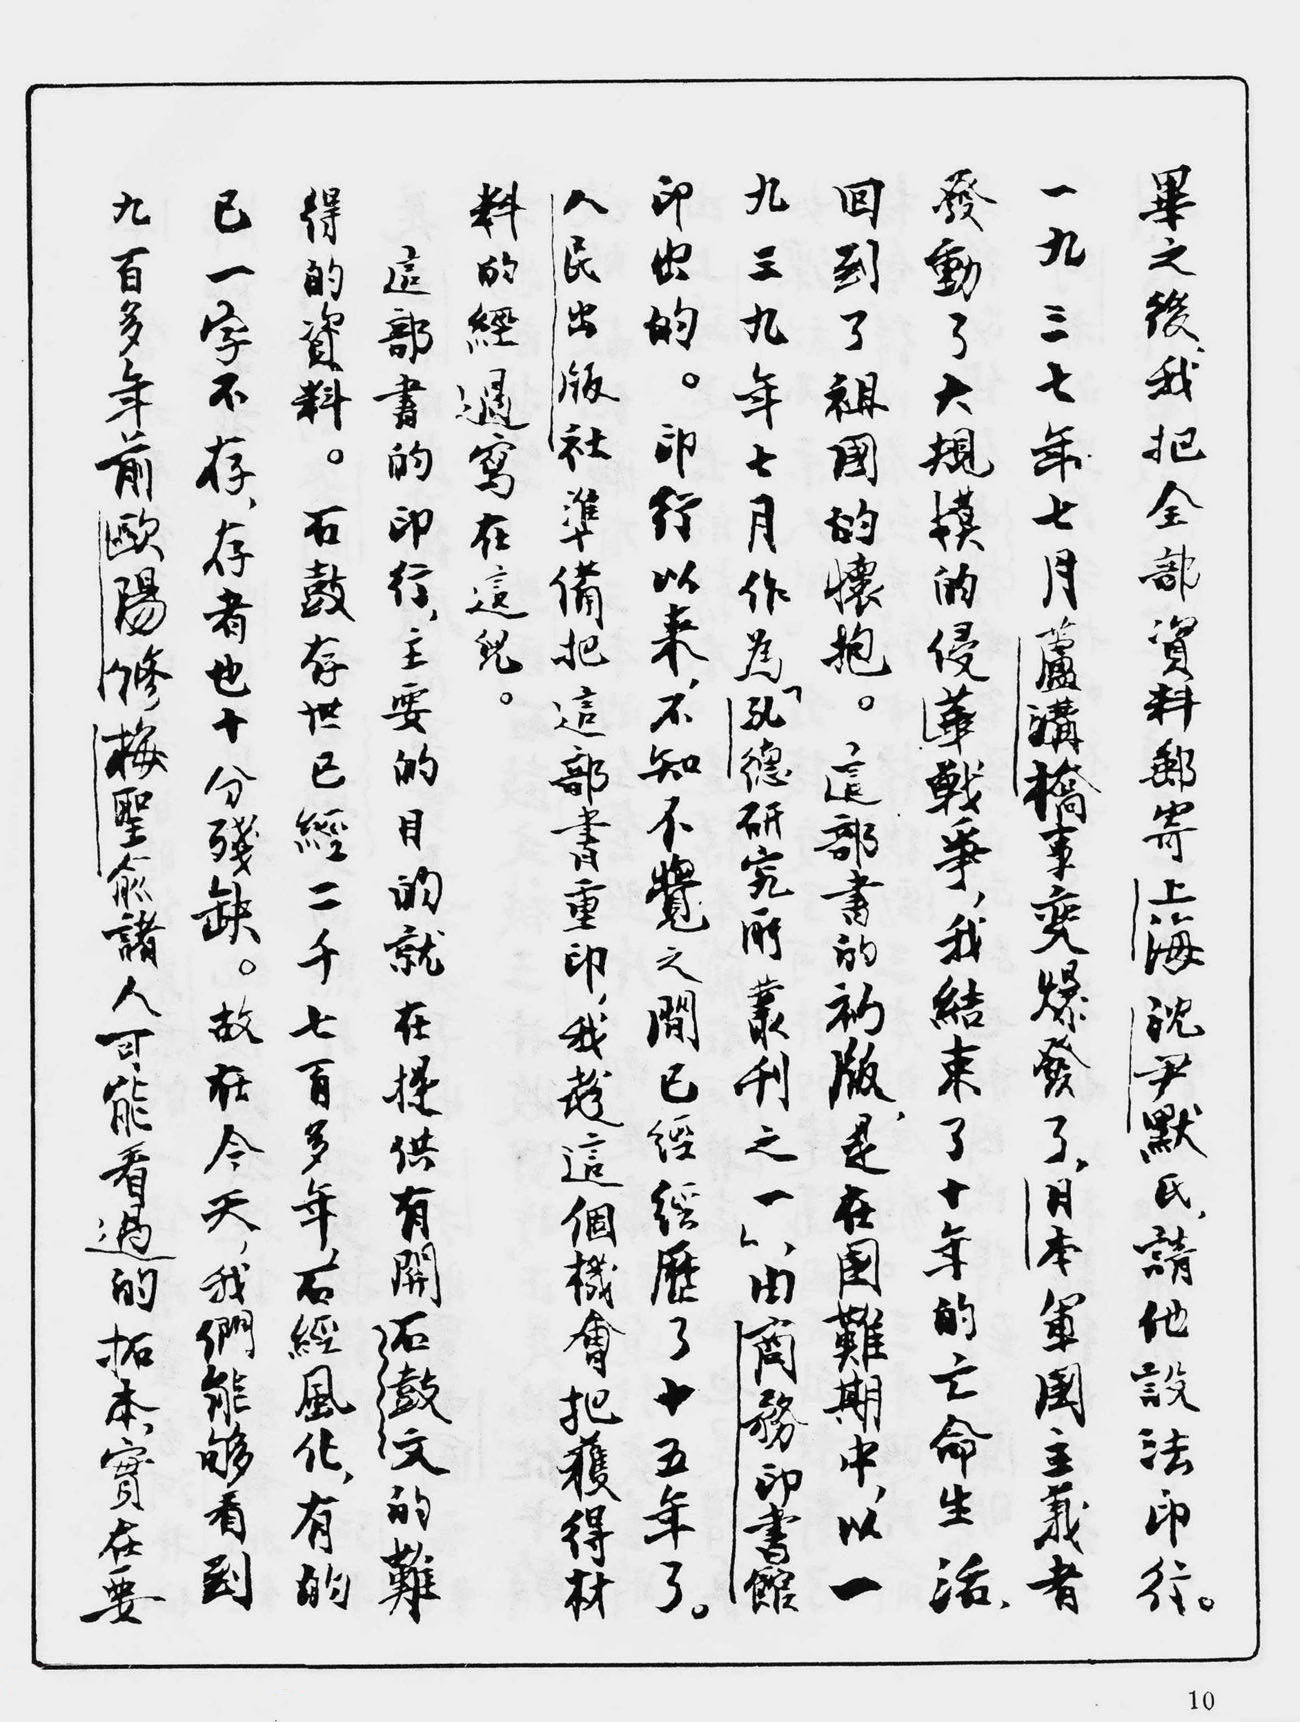 畢之後，我把全部資料郵寄上海沈尹默氏，請他設法印行。
一九三七年七月蘆溝橋事變爆發了，日本軍國主義者
發動了大規模的侵華戰爭，我結束了十年的亡命生活，
回到了祖國的懷抱。這部書的初版，是在國難期中，以一
九三九年七月作為「孔德研究所叢刊之一」，由商務印書館
印出的。印行以來，不知不覺之間已經經歷了十五年了。
人民出版社準備把這部書重印，我趁這個機會把獲得材
料的經過寫在這兒。
這部書的印行，主要的目的就在提供有關石鼓文的難
得的資料。石鼓存世已經二千七百多年，石經風化，有的
已一字不存，存者也十分殘缺。故在今天，我們能够看到
九百多年前歐陽修梅聖俞諸人可能看過的拓本，實在要
10